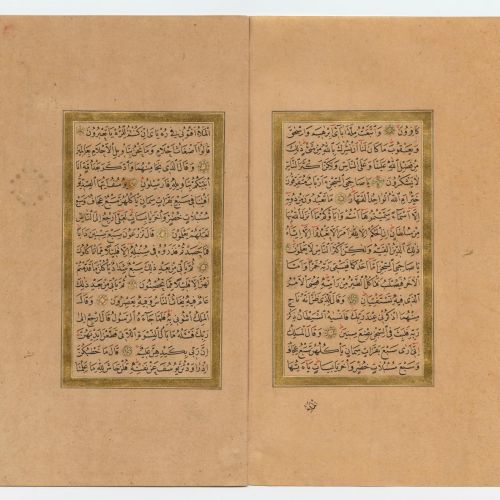 كَافِرُونَ وَاتَّبَعْتُ مِلَّةَ اٰبَٓاءٖى اِبْرٰهٖيمَ وَاِسْحٰقَ
وَيَعْقُوبَ مَا كَانَ لَنَٓا اَنْ نُشْرِكَ بِاللّٰهِ مِنْ شَىْءٍ ذٰلِكَ
مِنْ فَضْلِ اللّٰهِ عَلَيْنَا وَعَلَى النَّاسِ وَلٰكِنَّ اَكْثَرَ النَّاسِ
لَا يَشْكُرُونَ يَا صَاحِبَىِ السِّجْنِ ءَاَرْبَابٌ مُتَفَرِّقُونَ
خَيْرٌ اَمِ اللّٰهُ الْوَاحِدُ الْقَهَّارُ مَا تَعْبُدُونَ مِنْ دُونِهٖ
اِلَّٓا اَسْمَٓاءً سَمَّيْتُمُوهَٓا اَنْتُمْ وَاٰبَٓاؤُكُمْ مَٓا اَنْزَلَ اللّٰهُ بِهَا
مِنْ سُلْطَانٍ اِنِ الْحُكْمُ اِلَّا لِلّٰهِ اَمَرَ اَلَّا تَعْبُدُٓوا اِلَّٓا اِيَّاهُ
ذٰلِكَ الدّٖينُ الْقَيِّمُ وَلٰكِنَّ اَكْثَرَ النَّاسِ لَا يَعْلَمُونَ
يَا صَاحِبَىِ السِّجْنِ اَمَّٓا اَحَدُكُمَا فَيَسْقٖى رَبَّهُ خَمْرًا وَاَمَّا
الْاٰخَرُ فَيُصْلَبُ فَتَاْكُلُ الطَّيْرُ مِنْ رَاْسِهٖ قُضِىَ الْاَمْرُ
الَّذٖى فٖيهِ تَسْتَفْتِيَانِ وَقَالَ لِلَّذٖى ظَنَّ اَنَّهُ نَاجٍ
مِنْهُمَا اذْكُرْنٖى عِنْدَ رَبِّكَ فَاَنْسٰيهُ الشَّيْطَانُ ذِكْرَ
رَبِّهٖ فَلَبِثَ فِى السِّجْنِ بِضْعَ سِنٖينَ وَقَالَ الْمَلِكُ
اِنّٖٓى اَرٰى سَبْعَ بَقَرَاتٍ سِمَانٍ يَاْكُلُهُنَّ سَبْعٌ عِجَافٌ
وَسَبْعَ سُنْبُلَاتٍ خُضْرٍ وَاُخَرَ يَابِسَاتٍ يَٓا اَيُّهَا
الْمَلَاُ اَفْتُونٖى فٖى رُءْيَاىَ اِنْ كُنْتُمْ لِلرُّءْيَا تَعْبُرُونَ
قَالُٓوا اَضْغَاثُ اَحْلَامٍ وَمَا نَحْنُ بِتَاْوٖيلِ الْاَحْلَامِ بِعَالِمٖينَ
وَقَالَ الَّذٖى نَجَا مِنْهُمَا وَادَّكَرَ بَعْدَ اُمَّةٍ اَنَا
اُنَبِّئُكُمْ بِتَاْوٖيلِهٖ فَاَرْسِلُونِ يُوسُفُ اَيُّهَا الصِّدّٖيقُ
اَفْتِنَا فٖى سَبْعِ بَقَرَاتٍ سِمَانٍ يَاْكُلُهُنَّ سَبْعٌ عِجَافٌ وَسَبْعِ
سُنْبُلَاتٍ خُضْرٍ وَاُخَرَ يَابِسَاتٍ لَعَلّٖٓى اَرْجِعُ اِلَى النَّاسِ
لَعَلَّهُمْ يَعْلَمُونَ قَالَ تَزْرَعُونَ سَبْعَ سِنٖينَ دَاَبًا
فَمَا حَصَدْتُمْ فَذَرُوهُ فٖى سُنْبُلِهٖٓ اِلَّا قَلٖيلًا مِمَّا تَاْكُلُونَ
ثُمَّ يَاْتٖى مِنْ بَعْدِ ذٰلِكَ سَبْعٌ شِدَادٌ يَاْكُلْنَ مَا قَدَّمْتُمْ
لَهُنَّ اِلَّا قَلٖيلًا مِمَّا تُحْصِنُونَ ثُمَّ يَاْتٖى مِنْ بَعْدِ ذٰلِكَ
عَامٌ فٖيهِ يُغَاثُ النَّاسُ وَفٖيهِ يَعْصِرُونَ وَقَالَ
الْمَلِكُ ائْتُونٖى بِهٖ فَلَمَّا جَٓاءَهُ الرَّسُولُ قَالَ ارْجِعْ اِلٰى
رَبِّكَ فَسْـَٔلْهُ مَا بَالُ النِّسْوَةِ الّٰتٖى قَطَّعْنَ اَيْدِيَهُنَّ
اِنَّ رَبّٖى بِكَيْدِهِنَّ عَلٖيمٌ قَالَ مَا خَطْبُكُنَّ
اِذْ رَاوَدْتُنَّ يُوسُفَ عَنْ نَفْسِهٖ قُلْنَ حَاشَ لِلّٰهِ مَا عَلِمْنَا